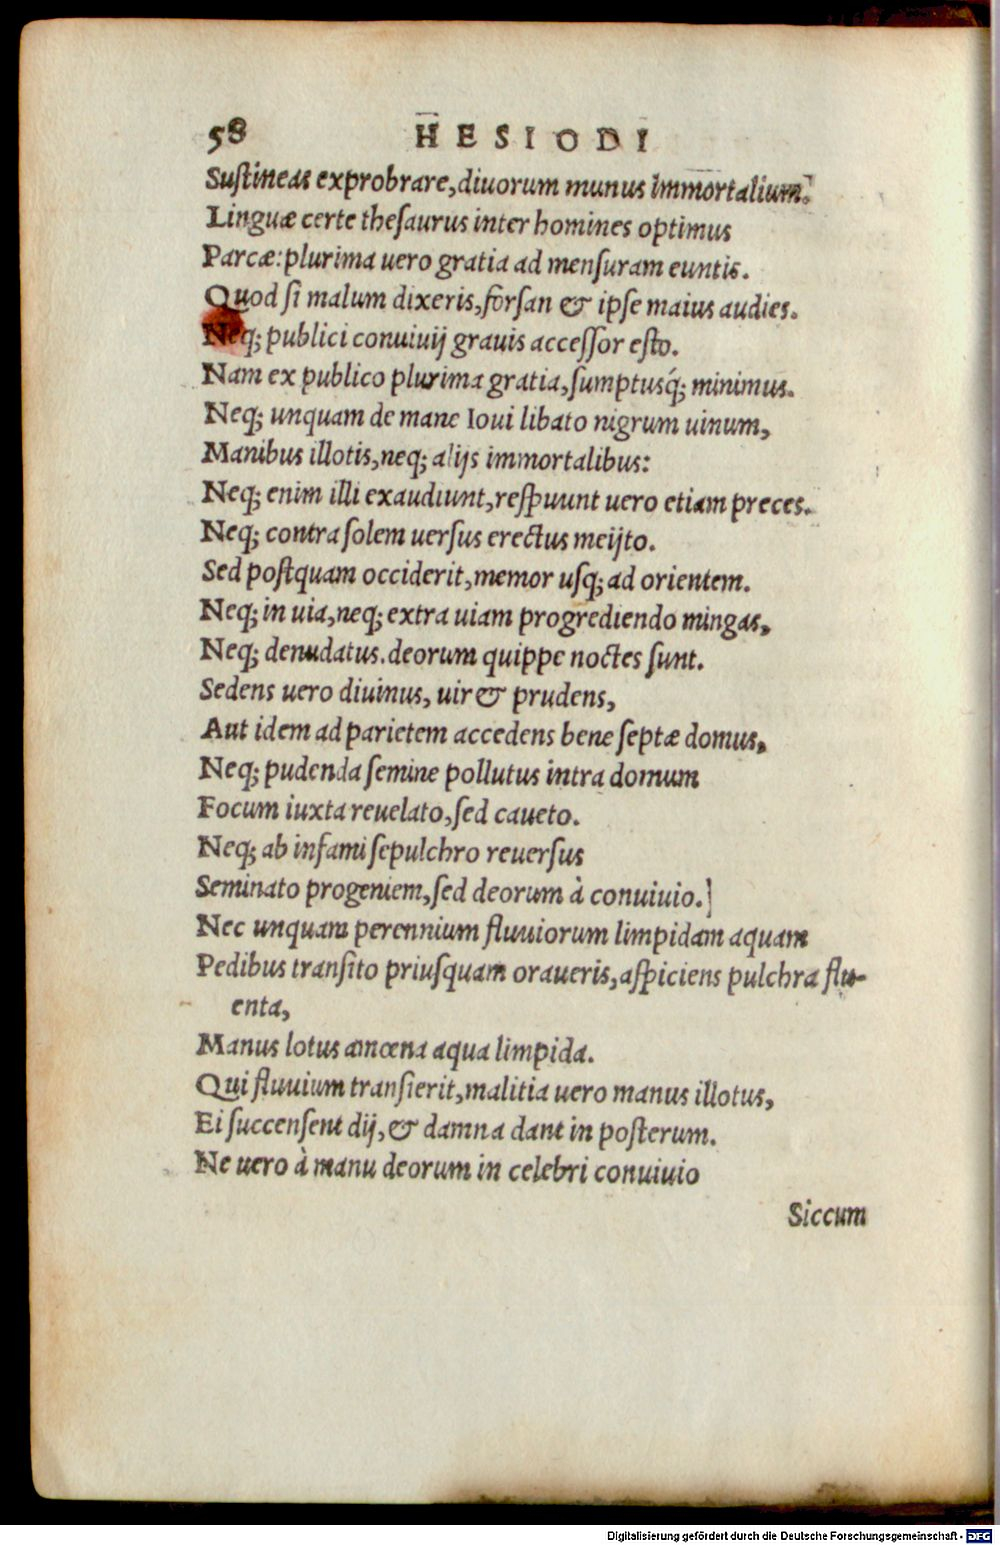 58 HESIODI
Suſtineas exprobrare, diuorum munus immortalium.
Linguæ certe theſaurus inter homines optimus
Parcæ: plurima uero gratia ad menſuram euntis.
Quod ſi malum dixeris, forſan & ipſe maius audies.
Neq; publici conuiuij grauis acceſſor eſto.
Nam ex publico plurima gratia, ſumptusq́; minimus.
Neq; unquam de mane Ioui libato nigrum uinum,
Manibus illotis, neq; alijs immortalibus:
Neq; enim illi exaudiunt, reſpuunt uero etiam preces.
Neq; contra ſolem uerſus erectus meijto.
Sed poſtquam occiderit, memor uſq; ad orientem.
Neq; in uia, neq; extra uiam progrediendo mingas,
Neq; denudatus. deorum quippe noctes ſunt.
Sedens uero diuinus, uir & prudens,
Aut idem ad parietem accedens bene ſeptæ domus,
Neq; pudenda ſemine pollutus intra domum
Focum iuxta reuelato, ſed caueto.
Neq; ab infami ſepulchro reuerſus
Seminato progeniem, ſed deorum à conuiuio.]
Nec unquam perennium fluuiorum limpidam aquam
Pedibus tranſito priuſquam oraueris, aſpiciens pulchra flu-
enta,
Manus lotus amœna aqua limpida.
Qui fluuium tranſierit, malitia uero manus illotus,
Ei ſuccenſent dij, & damna dant in poſterum.
Ne uero à manu deorum in celebri conuiuio
Siccum
Digitalisierung gefördert durch die Deutsche Forschungsgemeinschaft - DFG